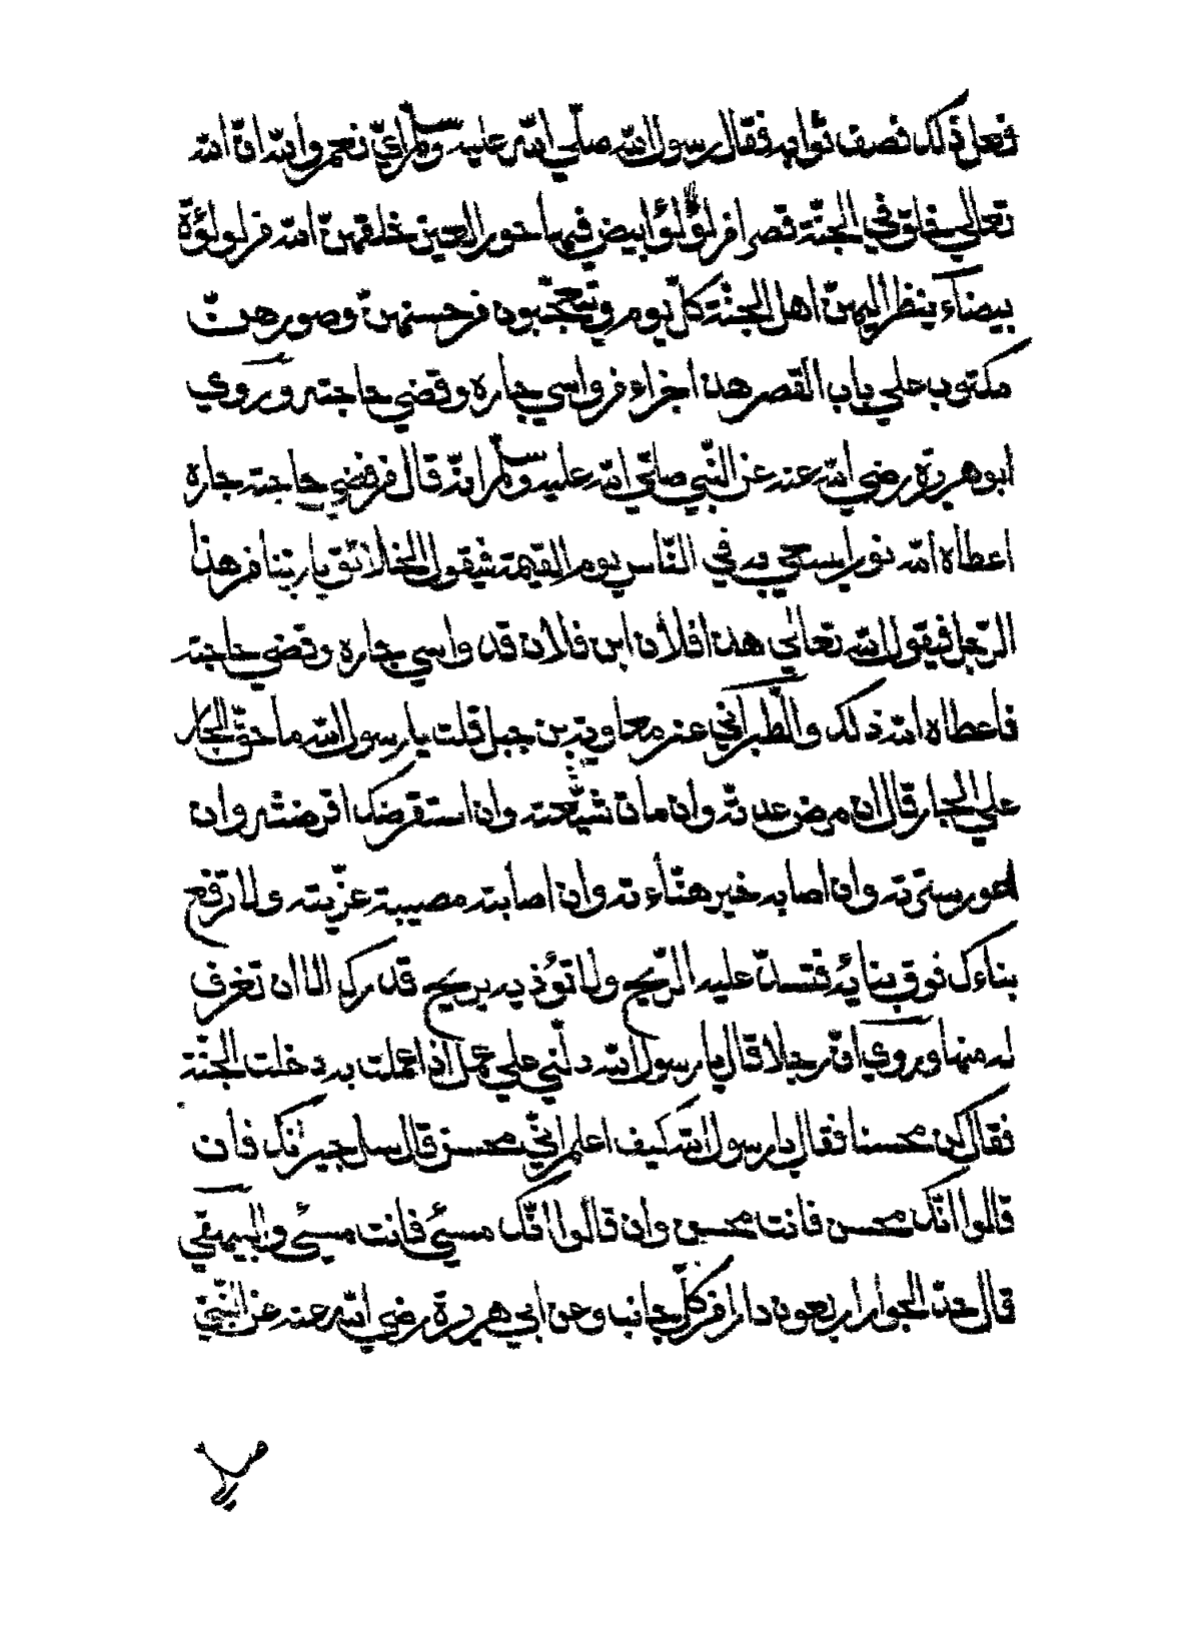 فعل ذلك فصف ثوابه فقال رسول الله صلّي الله عليه وسلم اي نعم والله انّ الله
تعالي خلق في الجنّة قصرا من لؤلؤ ابيض فيها حور العين خلقهنّ الله من لولؤة
بيضآء ينظر اليهنّ اهل الجنّة كلّ يوم ويتعجّبون من حسنهنّ وصورهنّ
مكتوب علي باب القصر هذا جزاء من واسي جاره وقضي حاجته وروي
ابو هريرة رضي الله عنه عن النّبي صلّي الله عليه وسلم انّه قال من قضي حاجته جاره
اعطاه الله نورا يسعي به في النّاس يوم القيمة فيقول الخلائق يا ربّنا من هذا
الرّجل فيقول الله تعالي هذا فلان ابن فلان قد واسي جاره وقضي حاجته
فاعطاه الله ذلك والطّبراني عن معاوية بن جبل قلت يا رسول الله ما حقّ الجار
علي الجار قال ان مرض عدته وان مات شيّعته وان استقرضك اقرضته وان
اعور ستّرته وان اصابه خير هنّأته وان اصابته مصيبة عزّيته ولا ترفع
بناءك فوق بنايه فتسدّ عليه الرّيح ولا تؤذيه بريح قدرك الا ان تغرف
له منها وروي انّ رجلا قال يا رسول الله دلّني علي عمل اذا عملت به دخلت الجنّة
فقال كن محسنا فقال يا رسول الله كيف اعلم انّي محسن قال سل جيرانك فان
قالوا انّك محسن فانت محسن وان قالوا انّك مسئ فانت مسئ والبيهقي
قال حدّ الجوار اربعون دارا من كلّ جانب وعن ابي هريرة رضي الله عنه عن النّبيّ